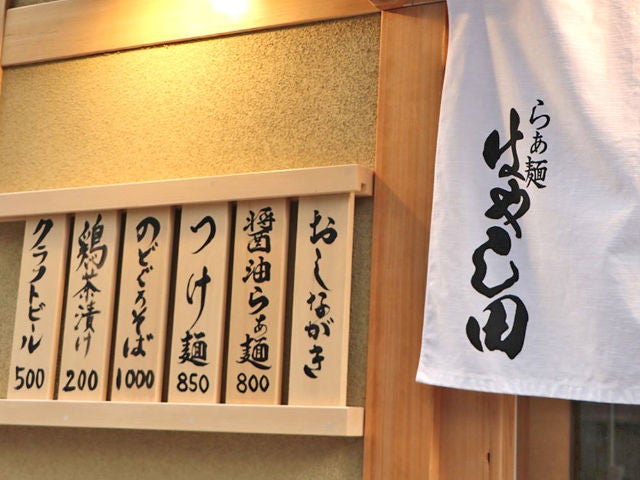 らぁ麺
はやし田
おしながき
醤油らぁ麺
800
つけ麺
850
のどぐろそば
1000
鶏茶漬け
200
クラフトビール
500